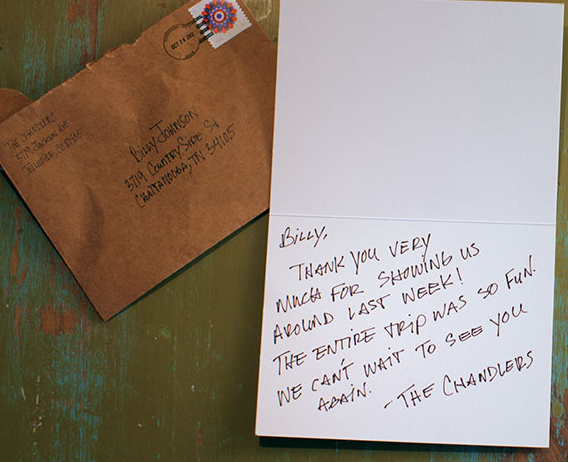 THE CHANDLERS
BILLY JOHNSON
3719 COUNTRYSIDE ST
CHATTANOOGA, TN 34105
BILLY,
THANK YOU VERY
MUCH FOR SHOWING US
AROUND LAST WEEK!
THE ENTIRE TRIP WAS SO FUN.
WE CAN'T WAIT TO SEE YOU
AGAIN.
-THE CHANDLERS